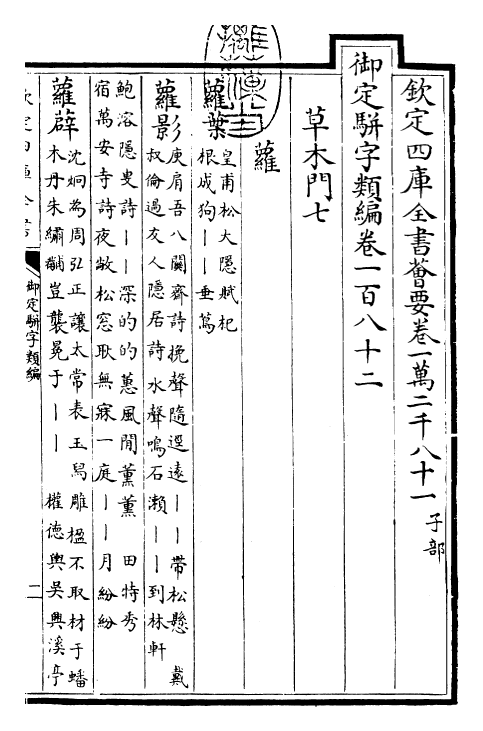 欽定四庫全書薈要卷一萬二千八十一 子部
御定駢字類編卷一百八十二
草木門七
蘿
蘿葉 皇甫松大隱賦杞
根成狗丨丨垂蔦
蘿影 庾肩吾八關齋詩挽聲隨逕遠丨丨帶松懸 戴
叔倫過友人隱居詩水聲鳴石瀨丨丨到林軒
鮑溶隱叟詩丨丨深的的蕙風閒薰薰 田特秀
宿萬安寺詩夜敞松窓耿無寐一庭丨丨月紛紛
蘿薜 沈炯為周弘正讓太常表玉舄雕楹不取材于蟠
木丹朱繡黼豈襲冕于丨丨 權德輿吳興溪亭
御定駢字類編